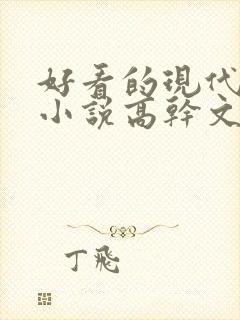 好看的現代
小說高幹文
丁飛